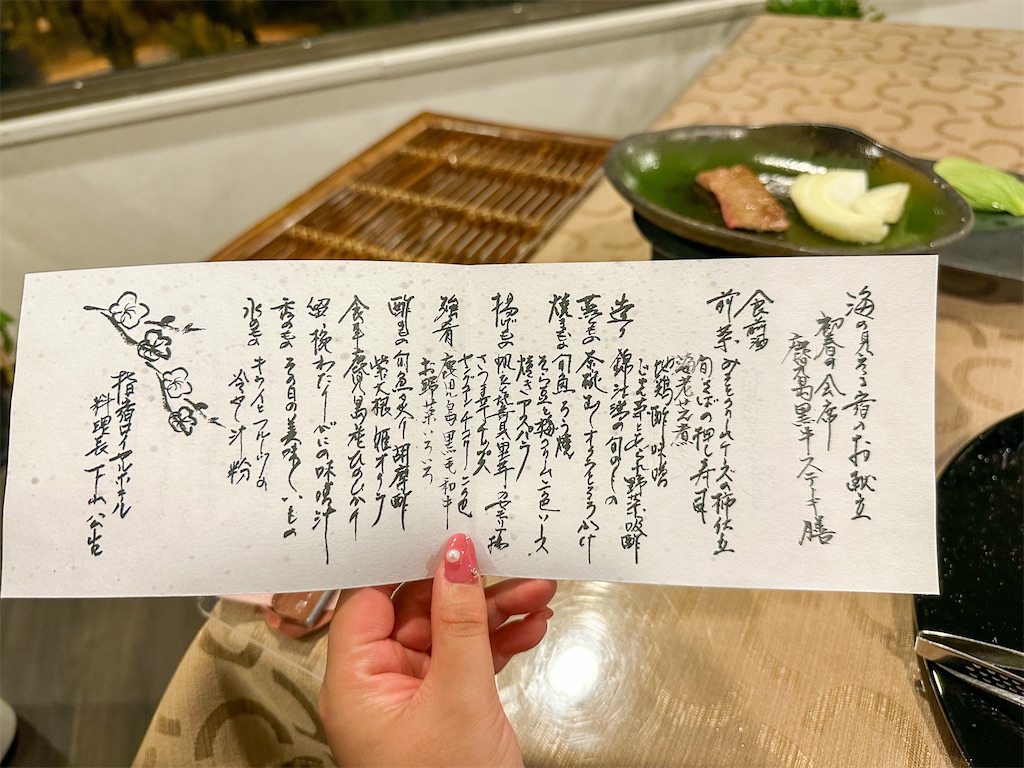 海の見える宿のお献立
初春の会席
鹿児島黒牛ステーキ膳
食前酒
前菜 みそクリームチーズの柿仕立
旬さばの押し寿司
海老芝煮
地鶏酢味噌
じゃが芋ともち 野菜吸酢
造り 錦江湾の旬のもの
蒸もの 茶碗むし とろろかけ
焼もの 旬魚 焼
そら豆と梅クリーム 二色ソース
焼きアスパラ
揚げもの 帆立 真黒芋
さつま芋チップス
ヤングコーン チコリー 二色
強肴 鹿児島黒毛和牛
お野菜いろいろ
酢もの 旬魚炙り 胡麻酢
紫大根 姫オクラ
食事 鹿児島産ひのひかり
留椀 わたりがにの味噌汁
香のもの その日の美味しいもの
水もの キウイとフルーツの
冷やし汁粉
指宿ロイヤルホテル
料理長 下